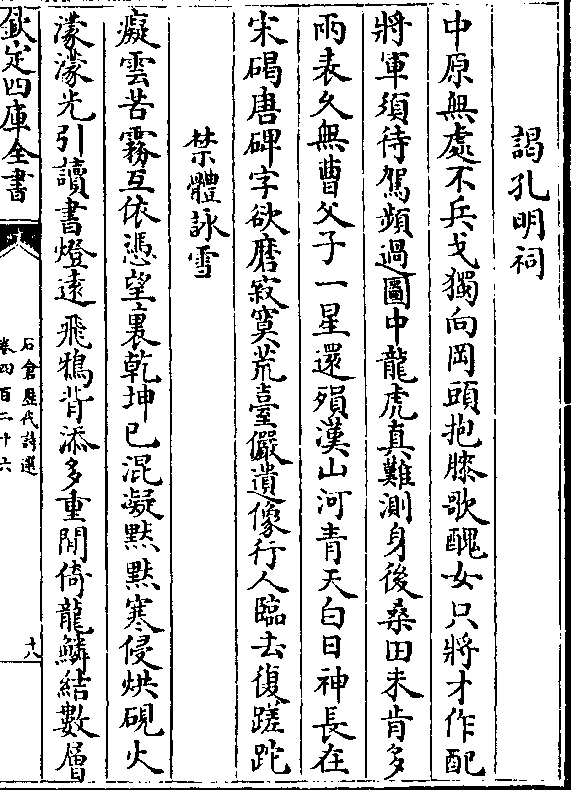 謁孔明祠
中原無處不兵戈獨向岡頭抱膝歌醜女只將才作配
將軍須待駕頻過圖中龍虎真難測身後桑田未肯多
兩表久無曹父子一星還殞漢山河青天白日神長在
宋碣唐碑字欲磨寂寞荒臺儼遺像行人臨去復蹉跎
禁體詠雪
癡雲苦霧互依憑望裏乾坤已混凝黙黙寒侵烘硯火
濛濛光引讀書燈遠飛鴉背添多重閒倚龍鱗結數層
欽定四庫全書
石倉歷代詩選
卷四百二十六
十八